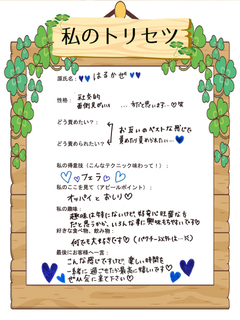 私のトリセツ
源氏名： はるかぜ
性格： 社交的
面倒見がいい …だと思います…♡笑
どう責めたい？：
お互いのペースな感じで
責めたり責められたい…♥
どう責められたい？：
私の得意技（こんなテクニック味わって！）：
フェラ
私のここを見て（アピールポイント）：
オッパイとおしり♡
私の趣味：
趣味は特にないけど、好奇心旺盛な方
だと思うから、いろんな事に興味もちやすいです
好きな食べ物、飲み物：
何でも大好きです♡（パクチー以外は…）
最後にお客様へ一言：
こんな感じですけど、楽しい時間を
一緒に過ごせたら最高に嬉しいです♡
ぜひ会いに来て下さい♡